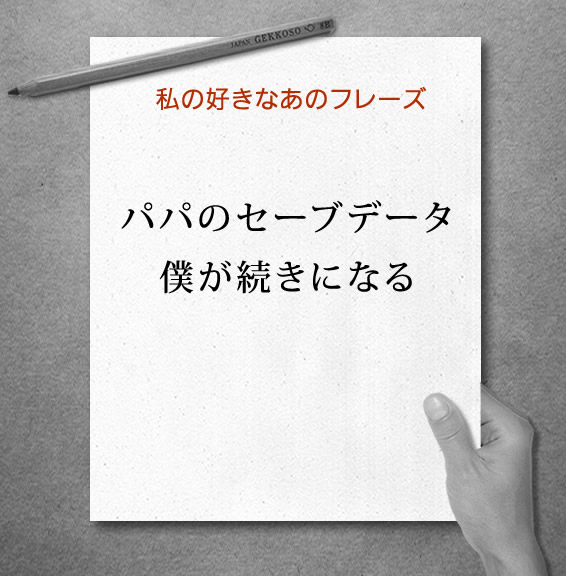 JAPAN GEKKOSO 8B
私の好きなあのフレーズ
パパのセーブデータ
僕が続きになる